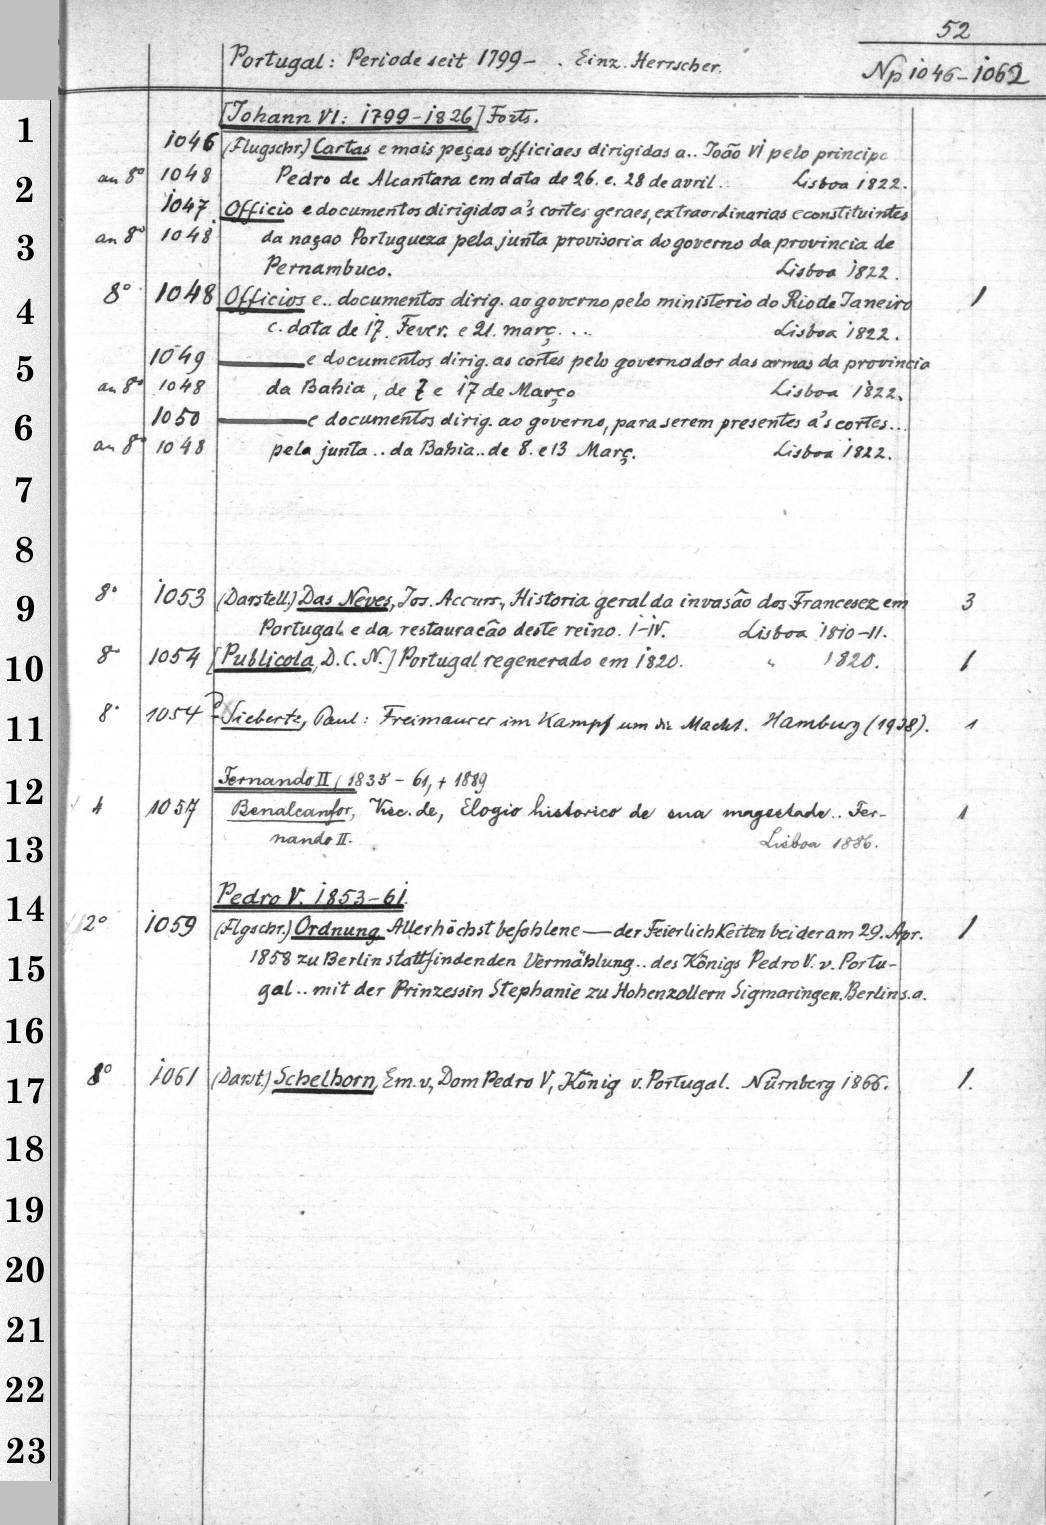 52
Portugal: Periode seit 1799- . Einz. Herrscher.
Np 1046-1062
[Johann VI: 1799-1826] Forts.
1
1046 (Flugschr.) Cartas e mais peças officiaes dirigidas a.. João VI pelo principe
an 8° 1048 Pedro de Alcantara em data de 26. e. 28 de avril. Lisboa 1822.
2
1047 Officio e documentos dirigidos a's cortes geraes, extraordinarias e constituintes
an 8° 1048 da naçao Portugueza pela junta provisoria do governo da provincia de
3
Pernambuco. Lisboa 1822.
8° 1048 Officios e.. documentos dirig. ao governo pelo ministerio do Rio de Janeiro 1
4
c. data de 17. Fever. e 21. març. ... Lisboa 1822.
1049 ——— e documentos dirig. as cortes pelo governador das armas da provincia
5
an 8° 1048 da Bahia, de 7 e 17 de Março Lisboa 1822.
1050 ——— e documentos dirig. ao governo, para serem presentes a's cortes...
6
an 8° 1048 pela junta.. da Bahia.. de 8. e 13 Març. Lisboa 1822.
7
8
8° 1053 (Darstell.) Das Neves, Jos. Accurs., Historia geral da invasão dos Francesez em 3
9
Portugal e da restauracão deste reino. I-IV. Lisboa 1810-11.
8° 1054 [Publicola, D. C. N.] Portugal regenerado em 1820. " 1820. 1
10
8° 1054 Siebertz, Paul: Freimaurer im Kampf um die Macht. Hamburg (1938). 1
11
Fernando II, 1835-61, + 1889
12
4 1057 Benalcanfor, Visc. de, Elogio historico de sua magestade.. Fer- 1
13
nando II. Lisboa 1886.
Pedro V. 1853-61.
14
2° 1059 (Flgschr.) Ordnung, Allerhöchst befohlene — der Feierlichkeiten bei der am 29. Apr. 1
15
1858 zu Berlin stattfindenden Vermählung.. des Königs Pedro V. v. Portu-
gal.. mit der Prinzessin Stephanie zu Hohenzollern Sigmaringen. Berlin s.a.
16
8° 1061 (Darst.) Schelhorn, Em. v., Dom Pedro V, König v. Portugal. Nürnberg 1866. 1.
17
18
19
20
21
22
23